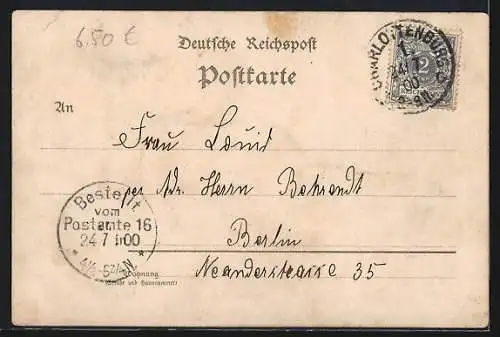 6.50 €
Deutsche Reichspost
Postkarte
CHARLOTTENBURG
1
24.7.
00
2
An
Frau Louid
per Adr. Herrn Bahrendt
Bestellt
vom
Postamte 16
24 7 00
Berlin
Neanderstrasse 35
Wohnung
(Straße und Hausnummer)